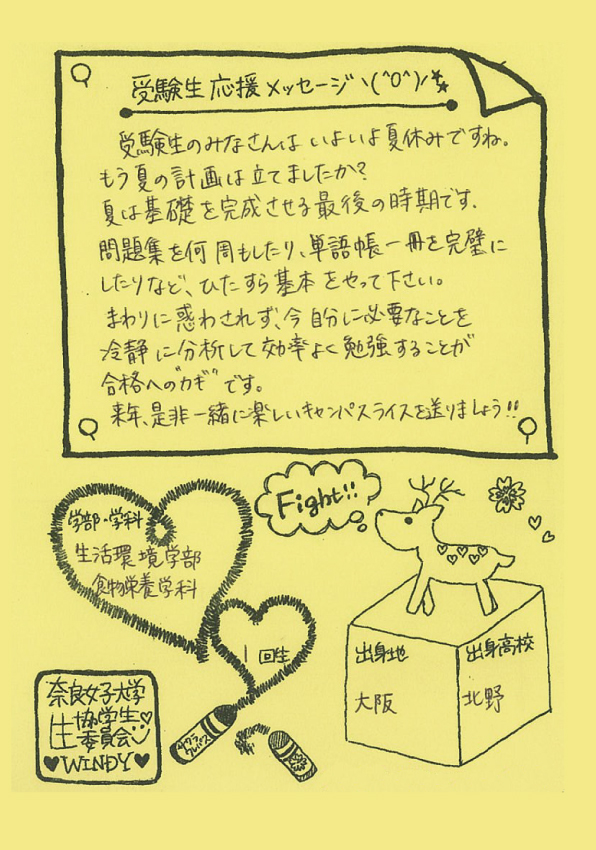 受験生応援メッセージヽ(^o^)ﾉ
受験生のみなさんはいよいよ夏休みですね。
もう夏の計画は立てましたか?
夏は基礎を完成させる最後の時期です。
問題集を何周もしたり、単語帳一冊を完璧に
したりなど、ひたすら基本をやって下さい。
まわりに惑わされず、今自分に必要なことを
冷静に分析して効率よく勉強することが
合格への"カギ"です。
来年、是非一緒に楽しいキャンパスライスを送りましょう!!
Fight!!
学部・学科
生活環境学部
食物栄養学科
1回生
出身地
大阪
出身高校
北野
サクラ
クレパス
奈良女子大学
生協学生
委員会
♥WINDY♥